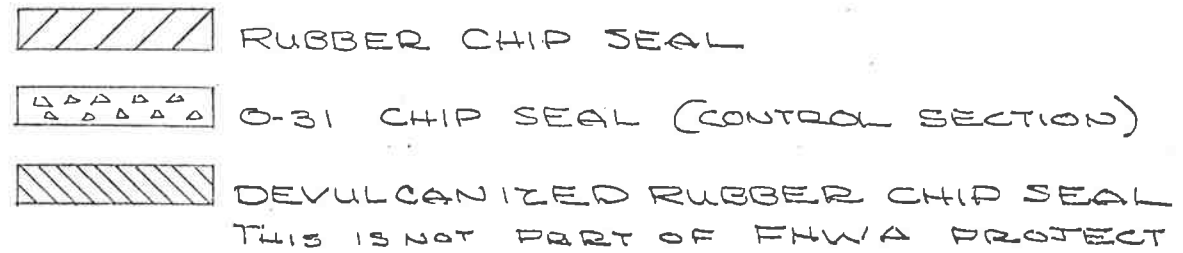 RUBBER CHIP SEAL
O-31 CHIP SEAL (CONTROL SECTION)
DEVULCANIZED RUBBER CHIP SEAL
THIS IS NOT PART OF FHWA PROJECT